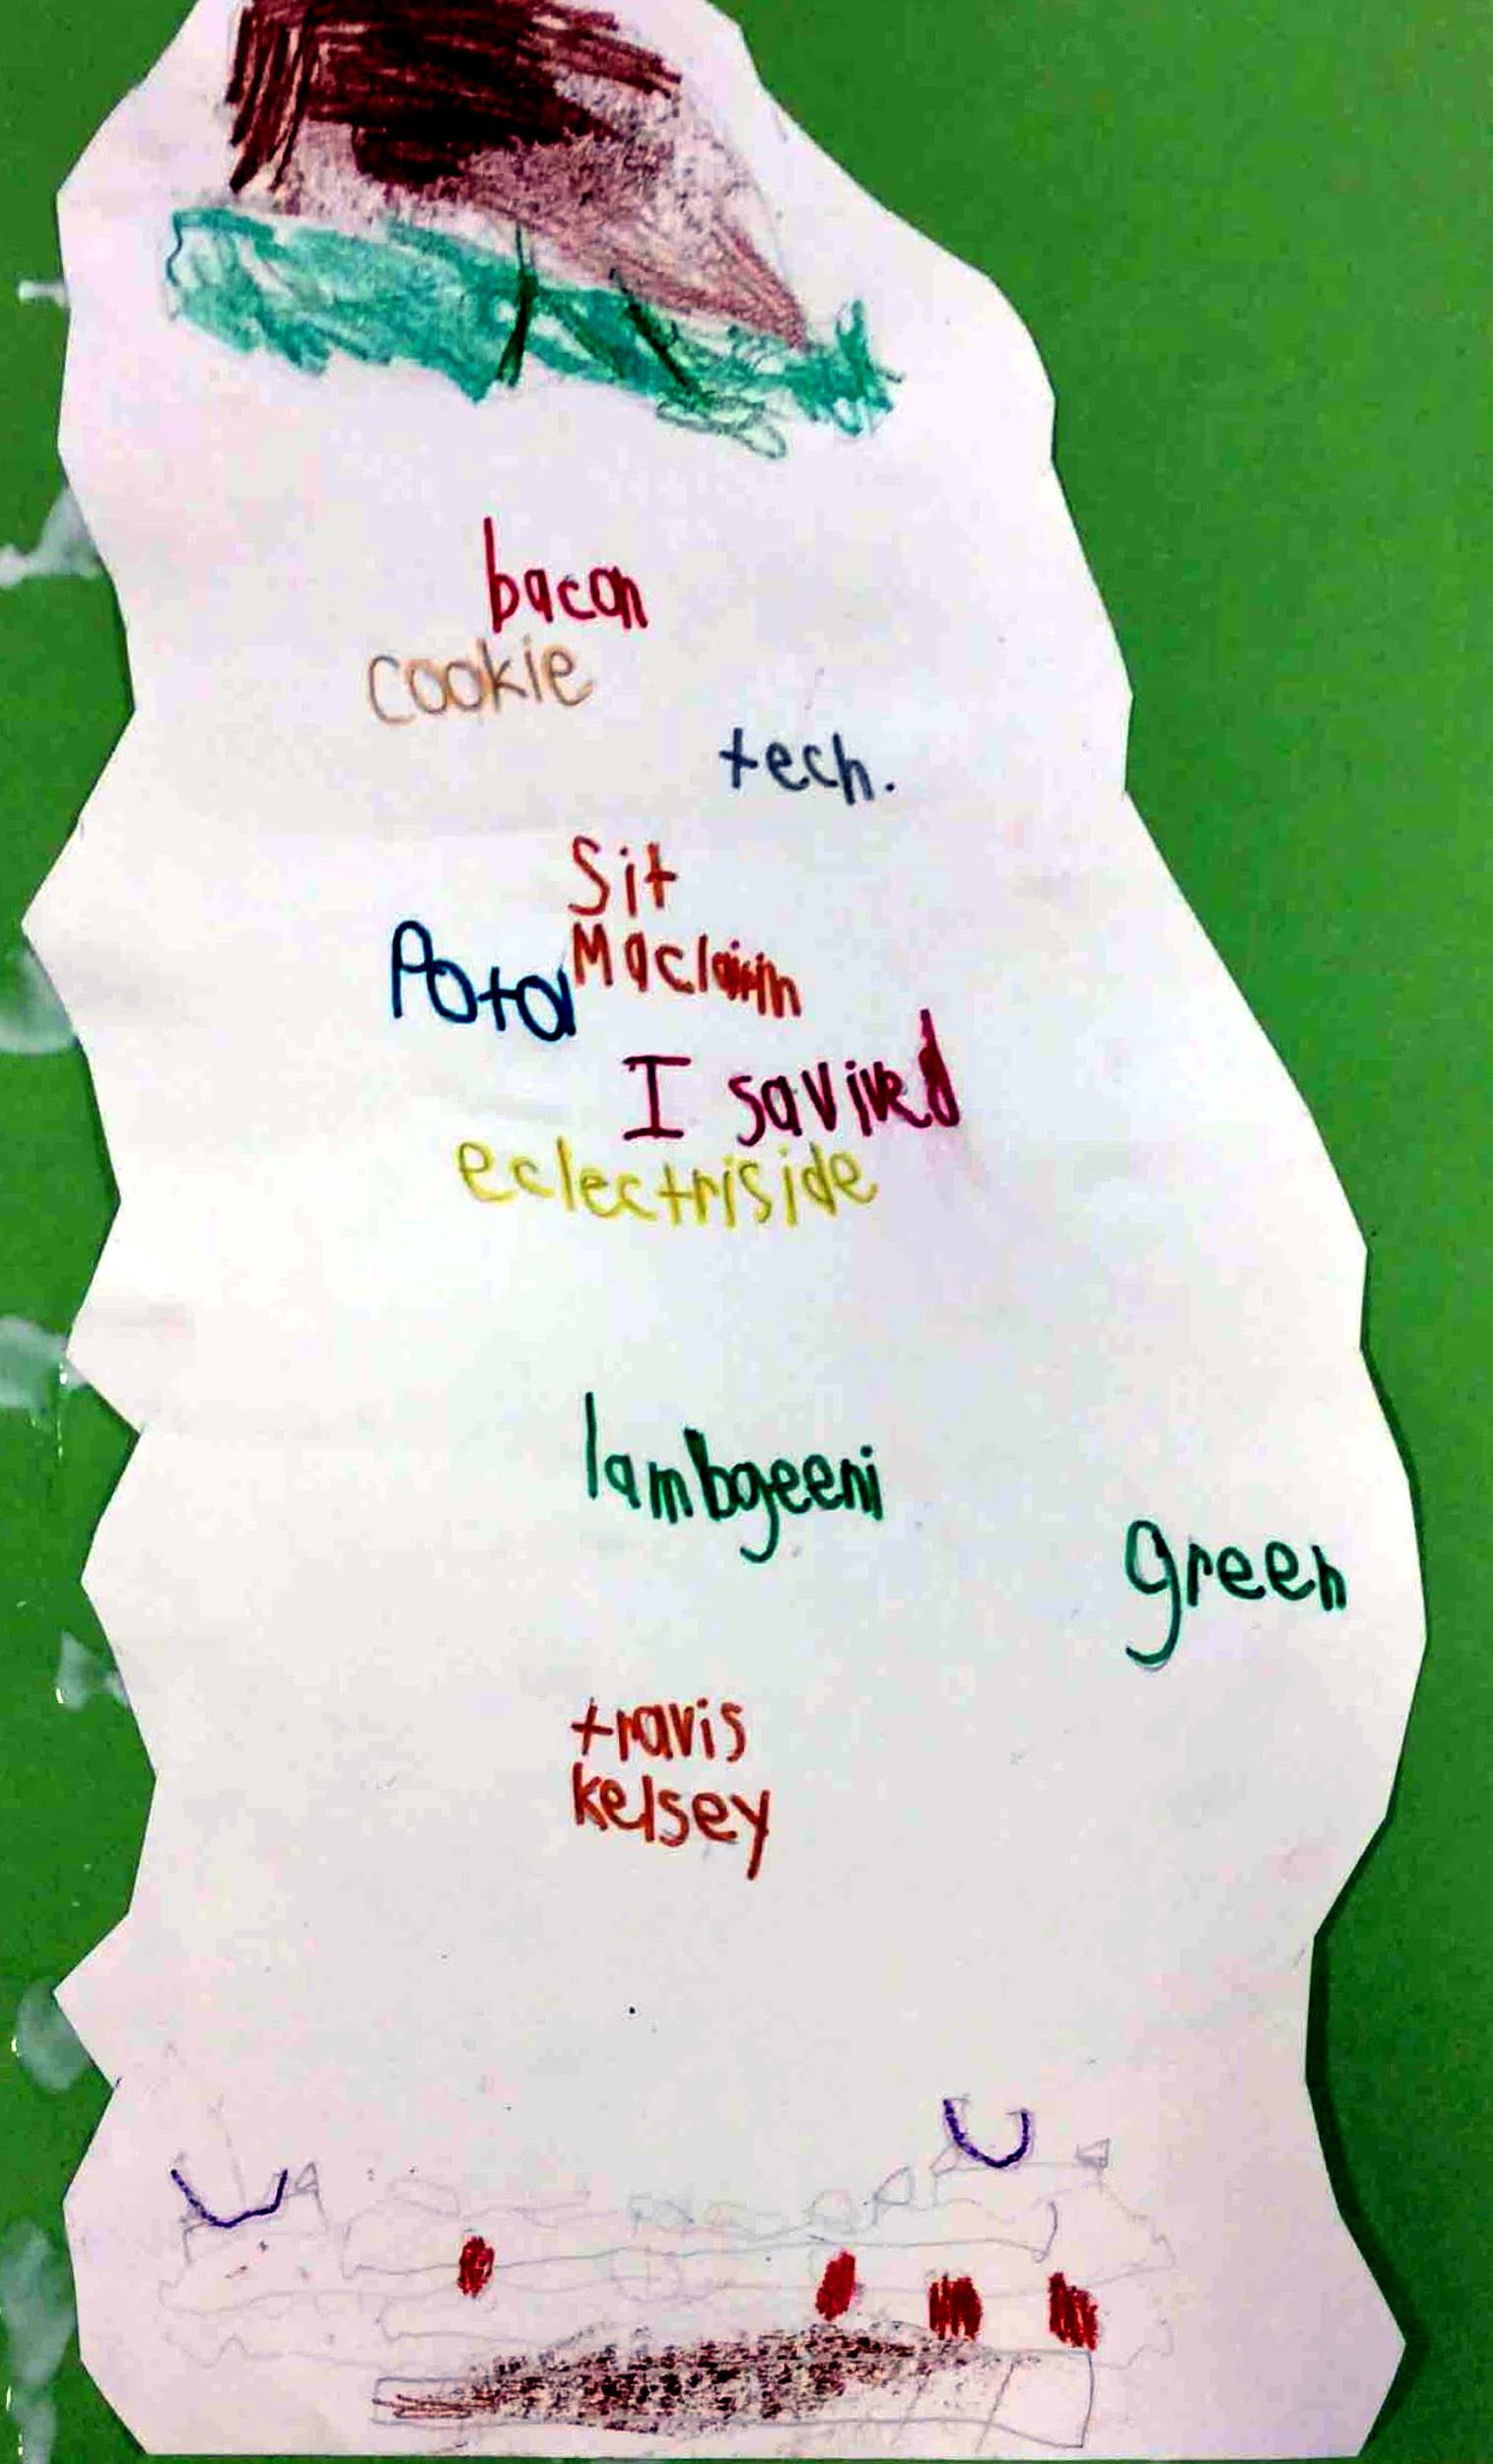 bacon
cookie
tech.
Sit
Potol
I savived
eclectriside
lambgeeni
green
travis
kelsey